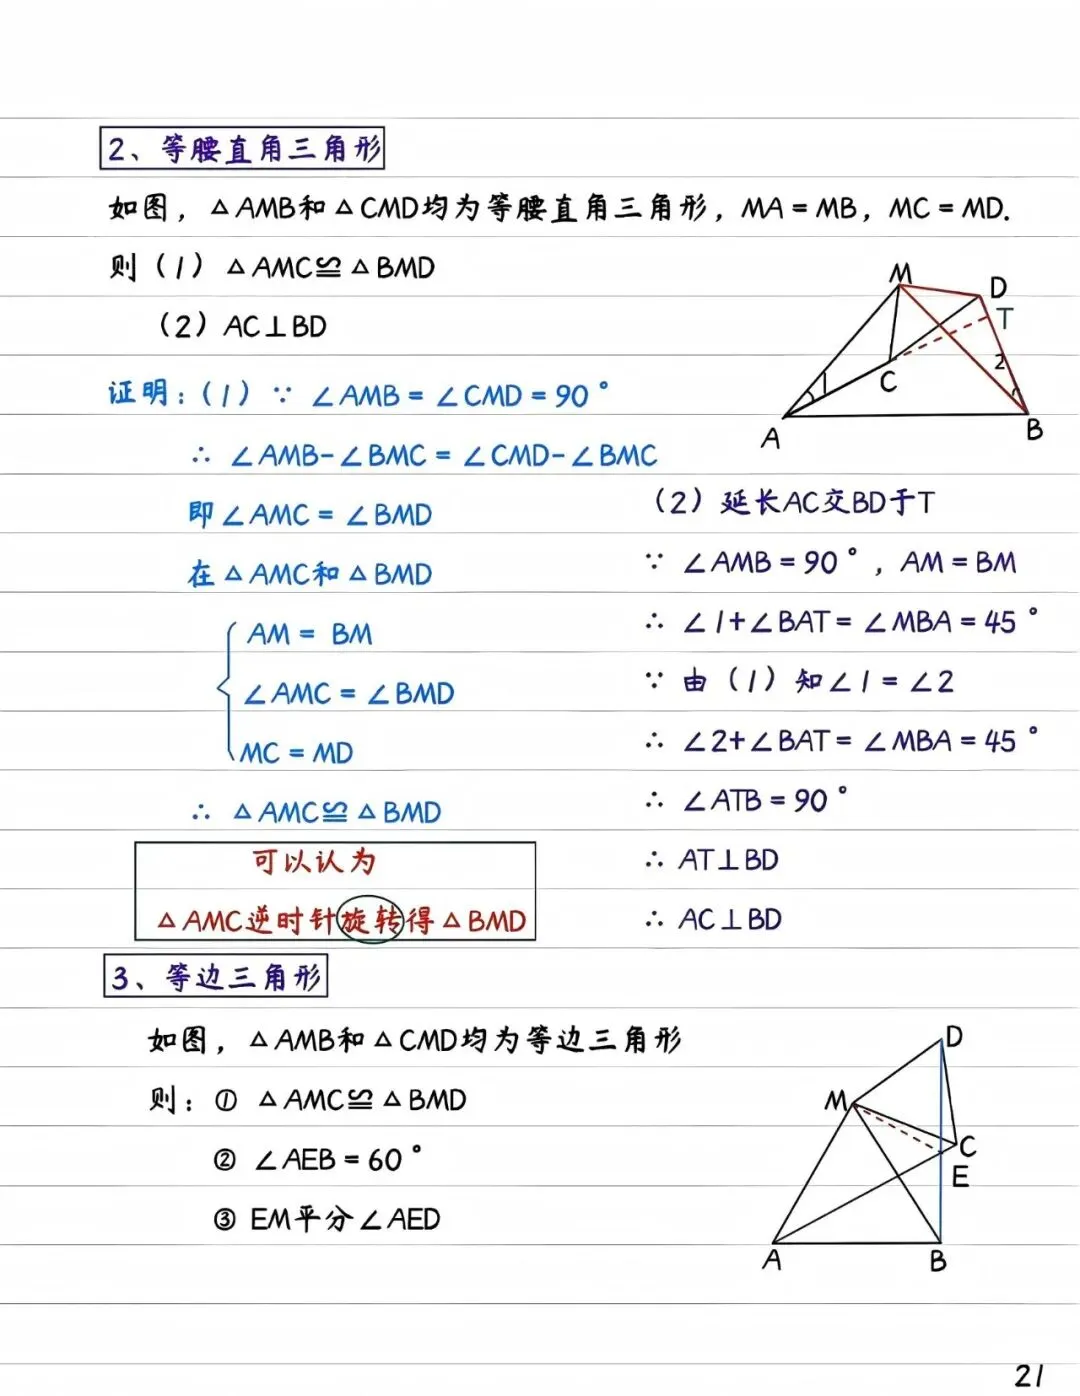 2、等腰直角三角形
如图，△AMB和△CMD均为等腰直角三角形，MA=MB，MC=MD.
则（1）△AMC≌△BMD
（2）AC⊥BD
证明：（1）∵ ∠AMB=∠CMD=90°
∴ ∠AMB-∠BMC=∠CMD-∠BMC
即∠AMC=∠BMD
在△AMC和△BMD
AM= BM
∠AMC=∠BMD
MC=MD
∴ △AMC≌△BMD
可以认为
△AMC逆时针旋转得△BMD
M
D
T
2
1
C
A
B
（2）延长AC交BD于T
∵ ∠AMB=90°，AM=BM
∴ ∠1+∠BAT=∠MBA=45°
∵ 由（1）知∠1=∠2
∴ ∠2+∠BAT=∠MBA=45°
∴ ∠ATB=90°
∴ AT⊥BD
∴ AC⊥BD
3、等边三角形
如图，△AMB和△CMD均为等边三角形
则：① △AMC≌△BMD
② ∠AEB=60°
③ EM平分∠AED
D
M
C
E
A
B
21